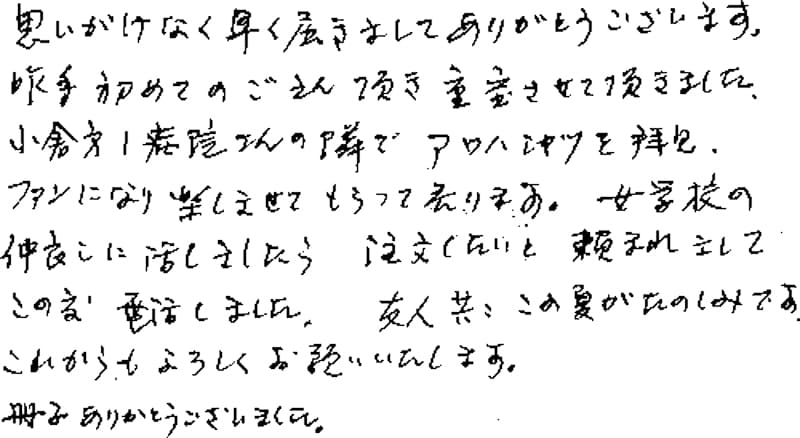 思いがけなく早く届きましてありがとうございます。
昨年初めてのごえん頂き重宝させて頂きました、
小倉第1病院さんの隣でアロハシャツを拝見、
ファンになり楽しませてもらって居ります。女学校の
仲良しに話しましたら 注文したいと頼まれまして
この度電話しました。 友人共にこの夏がたのしみです
これからもよろしくお願いいたします。
冊子ありがとうございました。